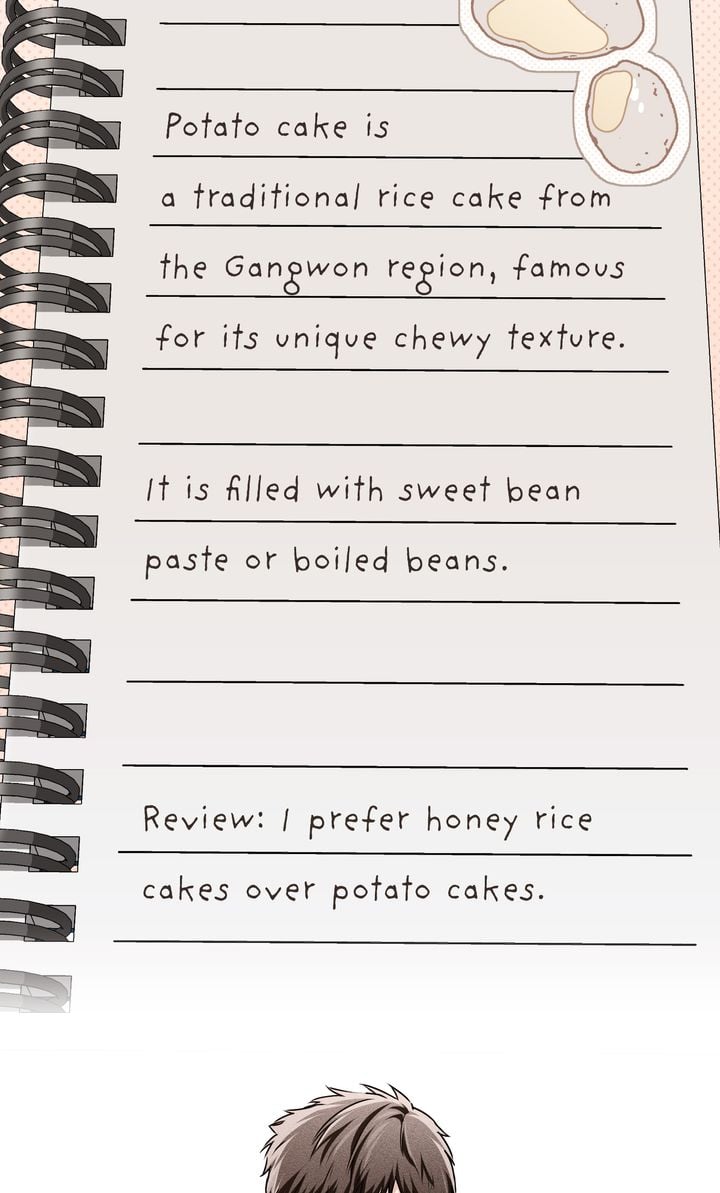 Potato cake is
a traditional rice cake from
the Gangwon region, famous
for its unique chewy texture.
It is filled with sweet bean
paste or boiled beans.
Review: I prefer honey rice
cakes over potato cakes.